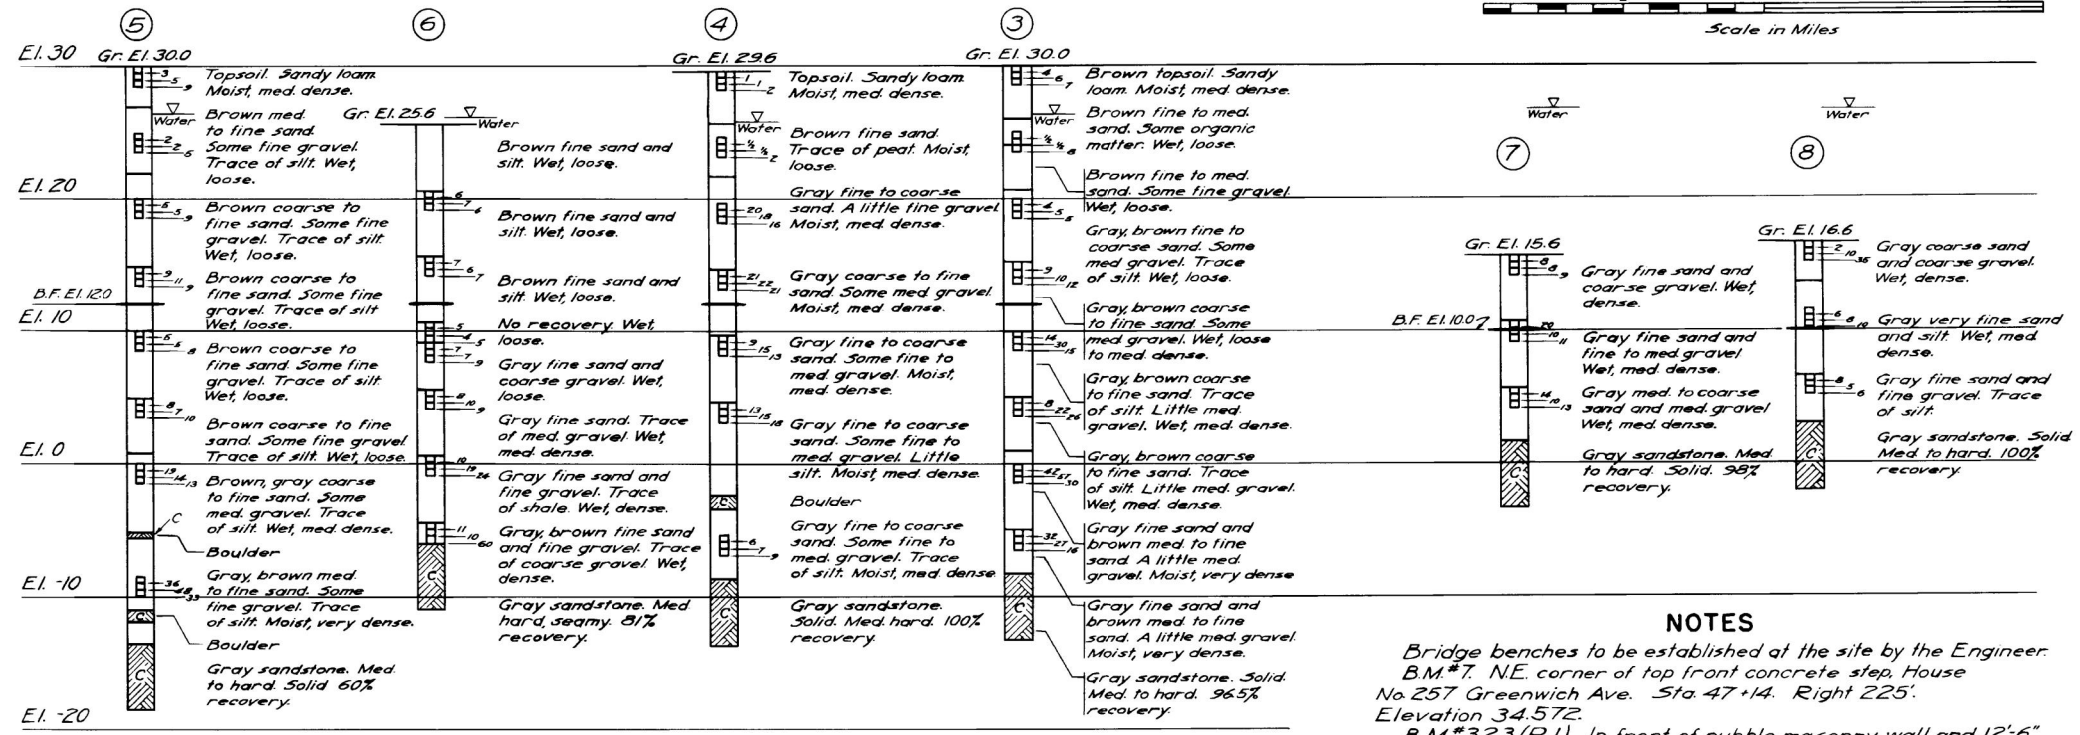 Scale in Miles
5
6
4
3
El. 30
Gr. El. 30.0
3
5
9
Topsoil. Sandy loam.
Moist, med. dense.
Water
2
2
5
Brown med.
to fine sand.
Some fine gravel.
Trace of silt. Wet,
loose.
El. 20
5
5
9
Brown coarse to
fine sand. Some fine
gravel. Trace of silt.
Wet, loose.
9
11
9
Brown coarse to
fine sand. Some fine
gravel. Trace of silt
Wet, loose.
B.F. El. 12.0
El. 10
6
5
8
Brown coarse to
fine sand. Some fine
gravel. Trace of silt.
Wet, loose.
8
7
10
Brown coarse to fine
sand. Some fine gravel.
Trace of silt. Wet, loose.
El. 0
19
14
13
Brown, gray coarse
to fine sand. Some
med. gravel. Trace
of silt. Wet, med. dense.
C
Boulder
El. -10
36
48
33
Gray, brown med.
to fine sand. Some
fine gravel. Trace
of silt. Moist, very dense.
C
Boulder
C
Gray sandstone. Med.
to hard. Solid 60%
recovery.
El. -20
Gr. El. 25.6
Water
Brown fine sand and
silt. Wet, loose.
6
7
6
Brown fine sand and
silt. Wet, loose.
7
6
7
Brown fine sand and
silt. Wet, loose.
5
4
5
No recovery. Wet,
loose.
7
7
9
Gray fine sand and
coarse gravel. Wet,
loose.
8
10
9
Gray fine sand. Trace
of med. gravel. Wet,
med. dense.
10
19
24
Gray fine sand and
fine gravel. Trace
of shale. Wet, dense.
11
10
60
Gray, brown fine sand
and fine gravel. Trace
of coarse gravel. Wet,
dense.
C
Gray sandstone. Med.
hard, seamy. 81%
recovery.
Gr. El. 29.6
1
1
2
Topsoil. Sandy loam.
Moist, med. dense.
Water
½
½
2
Brown fine sand.
Trace of peat. Moist,
loose.
20
18
16
Gray fine to coarse
sand. A little fine gravel.
Moist, med. dense.
21
22
21
Gray coarse to fine
sand. Some med. gravel.
Moist, med. dense.
9
15
13
Gray fine to coarse
sand. Some fine to
med. gravel. Moist,
med. dense.
13
15
18
Gray fine to coarse
sand. Some fine to
med. gravel. Little
silt. Moist, med. dense.
C
Boulder
6
7
9
Gray fine to coarse
sand. Some fine to
med. gravel. Trace
of silt. Moist, med. dense.
C
Gray sandstone.
Solid. Med. hard. 100%
recovery.
Gr. El. 30.0
4
6
7
Brown topsoil. Sandy
loam. Moist, med. dense.
Water
½
½
8
Brown fine to med.
sand. Some organic
matter. Wet, loose.
Brown fine to med.
sand. Some fine gravel.
Wet, loose.
4
5
5
Gray, brown fine to
coarse sand. Some
med gravel. Trace
of silt. Wet, loose.
9
10
12
Gray, brown coarse
to fine sand. Some
med. gravel. Wet, loose
to med. dense.
14
30
15
Gray, brown coarse
to fine sand. Trace
of silt. Little med.
gravel. Wet, med. dense.
8
22
26
Gray, brown coarse
to fine sand. Trace
of silt. Little med. gravel.
Wet, med. dense.
42
57
30
Gray fine sand and
brown med. to fine
sand. A little med.
gravel. Moist, very dense
32
27
16
Gray fine sand and
brown med. to fine
sand. A little med. gravel.
Moist, very dense.
C
Gray sandstone. Solid.
Med. to hard. 96.5%
recovery.
Water
7
Gr. El. 15.6
8
8
9
Gray fine sand and
coarse gravel. Wet,
dense.
B.F. El. 10.0
20
10
11
Gray fine sand and
fine to med. gravel
Wet, med. dense.
14
10
13
Gray med. to coarse
sand and med. gravel
Wet, med. dense.
C
Gray sandstone. Med.
to hard. Solid. 98%
recovery.
Water
8
Gr. El. 16.6
2
10
36
Gray coarse sand
and coarse gravel.
Wet, dense.
6
8
10
Gray very fine sand
and silt. Wet, med.
dense.
8
5
6
Gray fine sand and
fine gravel. Trace
of silt.
C
Gray sandstone. Solid.
Med. to hard. 100%
recovery.
NOTES
Bridge benches to be established at the site by the Engineer.
B.M.#7. N.E. corner of top front concrete step, House
No. 257 Greenwich Ave. Sta. 47+14. Right 225'.
Elevation 34.572.
B.M.#323 (R.I.). In front of rubble masonry wall and 12'-6"